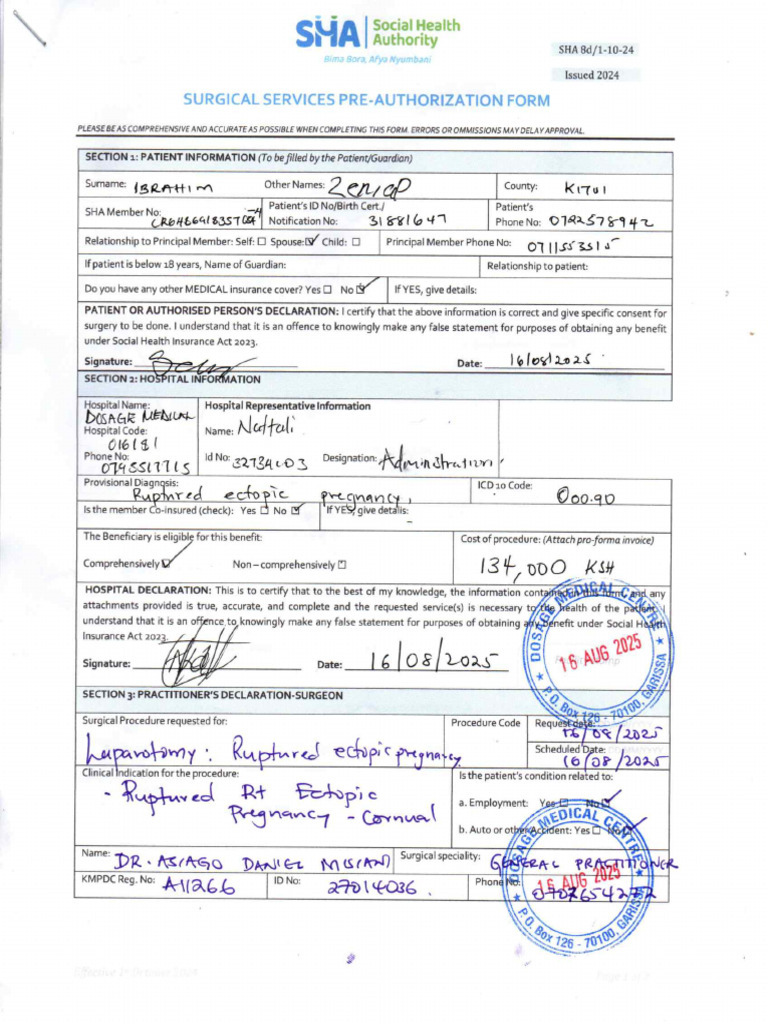 SHA Social Health Authority
Bima Bora, Afya Nyumbani
SHA 8d/1-10-24
Issued 2024
SURGICAL SERVICES PRE-AUTHORIZATION FORM
PLEASE BE AS COMPREHENSIVE AND ACCURATE AS POSSIBLE WHEN COMPLETING THIS FORM. ERRORS OR OMMISSIONS MAY DELAY APPROVAL.
SECTION 1: PATIENT INFORMATION (To be filled by the Patient/Guardian)
Surname: IBRAHIM Other Names: County: KITUI
SHA Member No: Patient's ID No/Birth Cert./ Notification No: 31881647 Patient's Phone No: 0722578942
Relationship to Principal Member: Self: ☐ Spouse: ☑ Child: ☐ Principal Member Phone No: 0711553515
If patient is below 18 years, Name of Guardian: Relationship to patient:
Do you have any other MEDICAL insurance cover? Yes ☐ No ☑ If YES, give details:
PATIENT OR AUTHORISED PERSON'S DECLARATION: I certify that the above information is correct and give specific consent for
surgery to be done. I understand that it is an offence to knowingly make any false statement for purposes of obtaining any benefit
under Social Health Insurance Act 2023.
Signature: Date: 16/08/2025
SECTION 2: HOSPITAL INFORMATION
Hospital Name: DOSAGE MEDICAL
Hospital Code: 016181
Phone No: 0793517715
Hospital Representative Information
Name: Naftali
Id No: 32734003 Designation: Administration
Provisional Diagnosis: Ruptured ectopic pregnancy, ICD 10 Code: O00.90
Is the member Co-insured (check): Yes ☐ No ☑ If YES, give details: -
The Beneficiary is eligible for this benefit:
Comprehensively ☑ Non – comprehensively ☐
Cost of procedure: (Attach pro-forma invoice)
134,000 KSH
HOSPITAL DECLARATION: This is to certify that to the best of my knowledge, the information contained in this form and any
attachments provided is true, accurate, and complete and the requested service(s) is necessary to the health of the patient. I
understand that it is an offence to knowingly make any false statement for purposes of obtaining any benefit under Social Health
Insurance Act 2023.
Signature: Date: 16/08/2025
DOSAGE MEDICAL CENTRE
16 AUG 2025
P.O. Box 126 - 70100, GARISSA
SECTION 3: PRACTITIONER'S DECLARATION-SURGEON
Surgical Procedure requested for: Procedure Code Request date: 16/08/2025
Laparotomy: Ruptured ectopic pregnancy Scheduled Date: 16/08/2025
Clinical Indication for the procedure:
- Ruptured Rt Ectopic
Pregnancy - Cornual
Is the patient's condition related to:
a. Employment: Yes ☐ No ☑
b. Auto or other Accident: Yes ☐ No ☑
Name: DR. ASIAGO DANIEL MISIANI Surgical speciality: GENERAL PRACTITIONER
KMPDC Reg. No: A11266 ID No: 27014036. Phone No: 0707654272
DOSAGE MEDICAL CENTRE
16 AUG 2025
P.O. Box 126 - 70100, GARISSA
Effective 1st October 2024